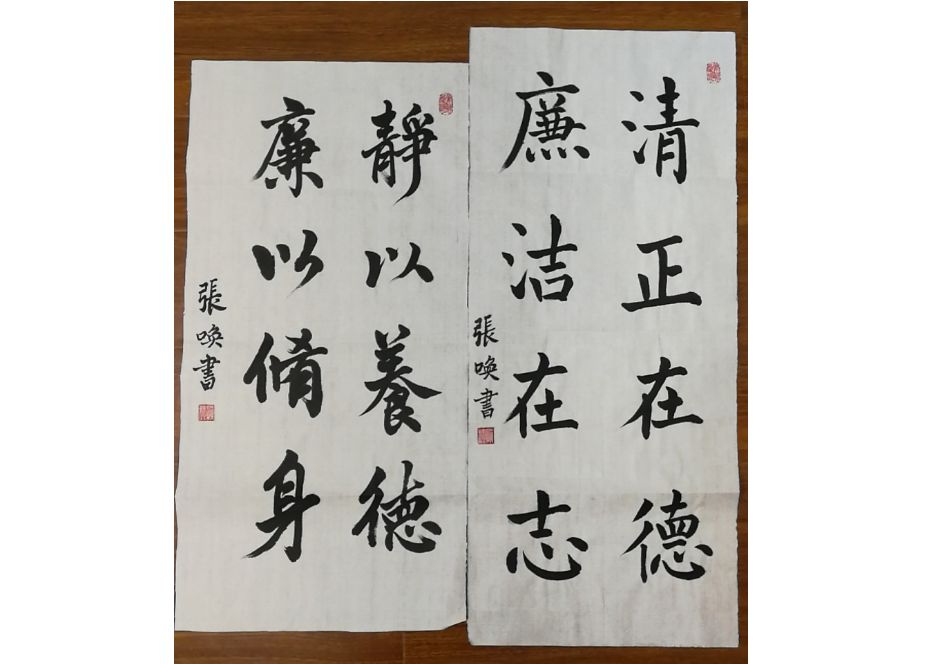 清正在德
廉洁在志
張唤書
靜以養德
廉以脩身
張唤書